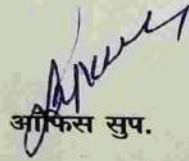 ऑफिस सुप.